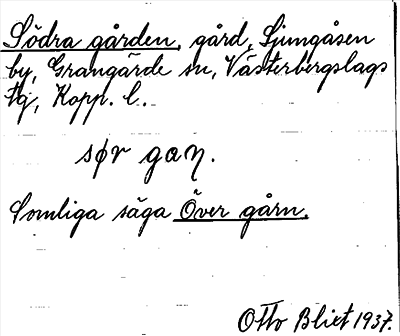 Södra gården, gård, Ljungåsen
by, Grangärde sn, Västerbergslags
tg, Kopp. l..
sør gaɳ.
Somliga säga Över gårn.
Otto Blixt 1937.